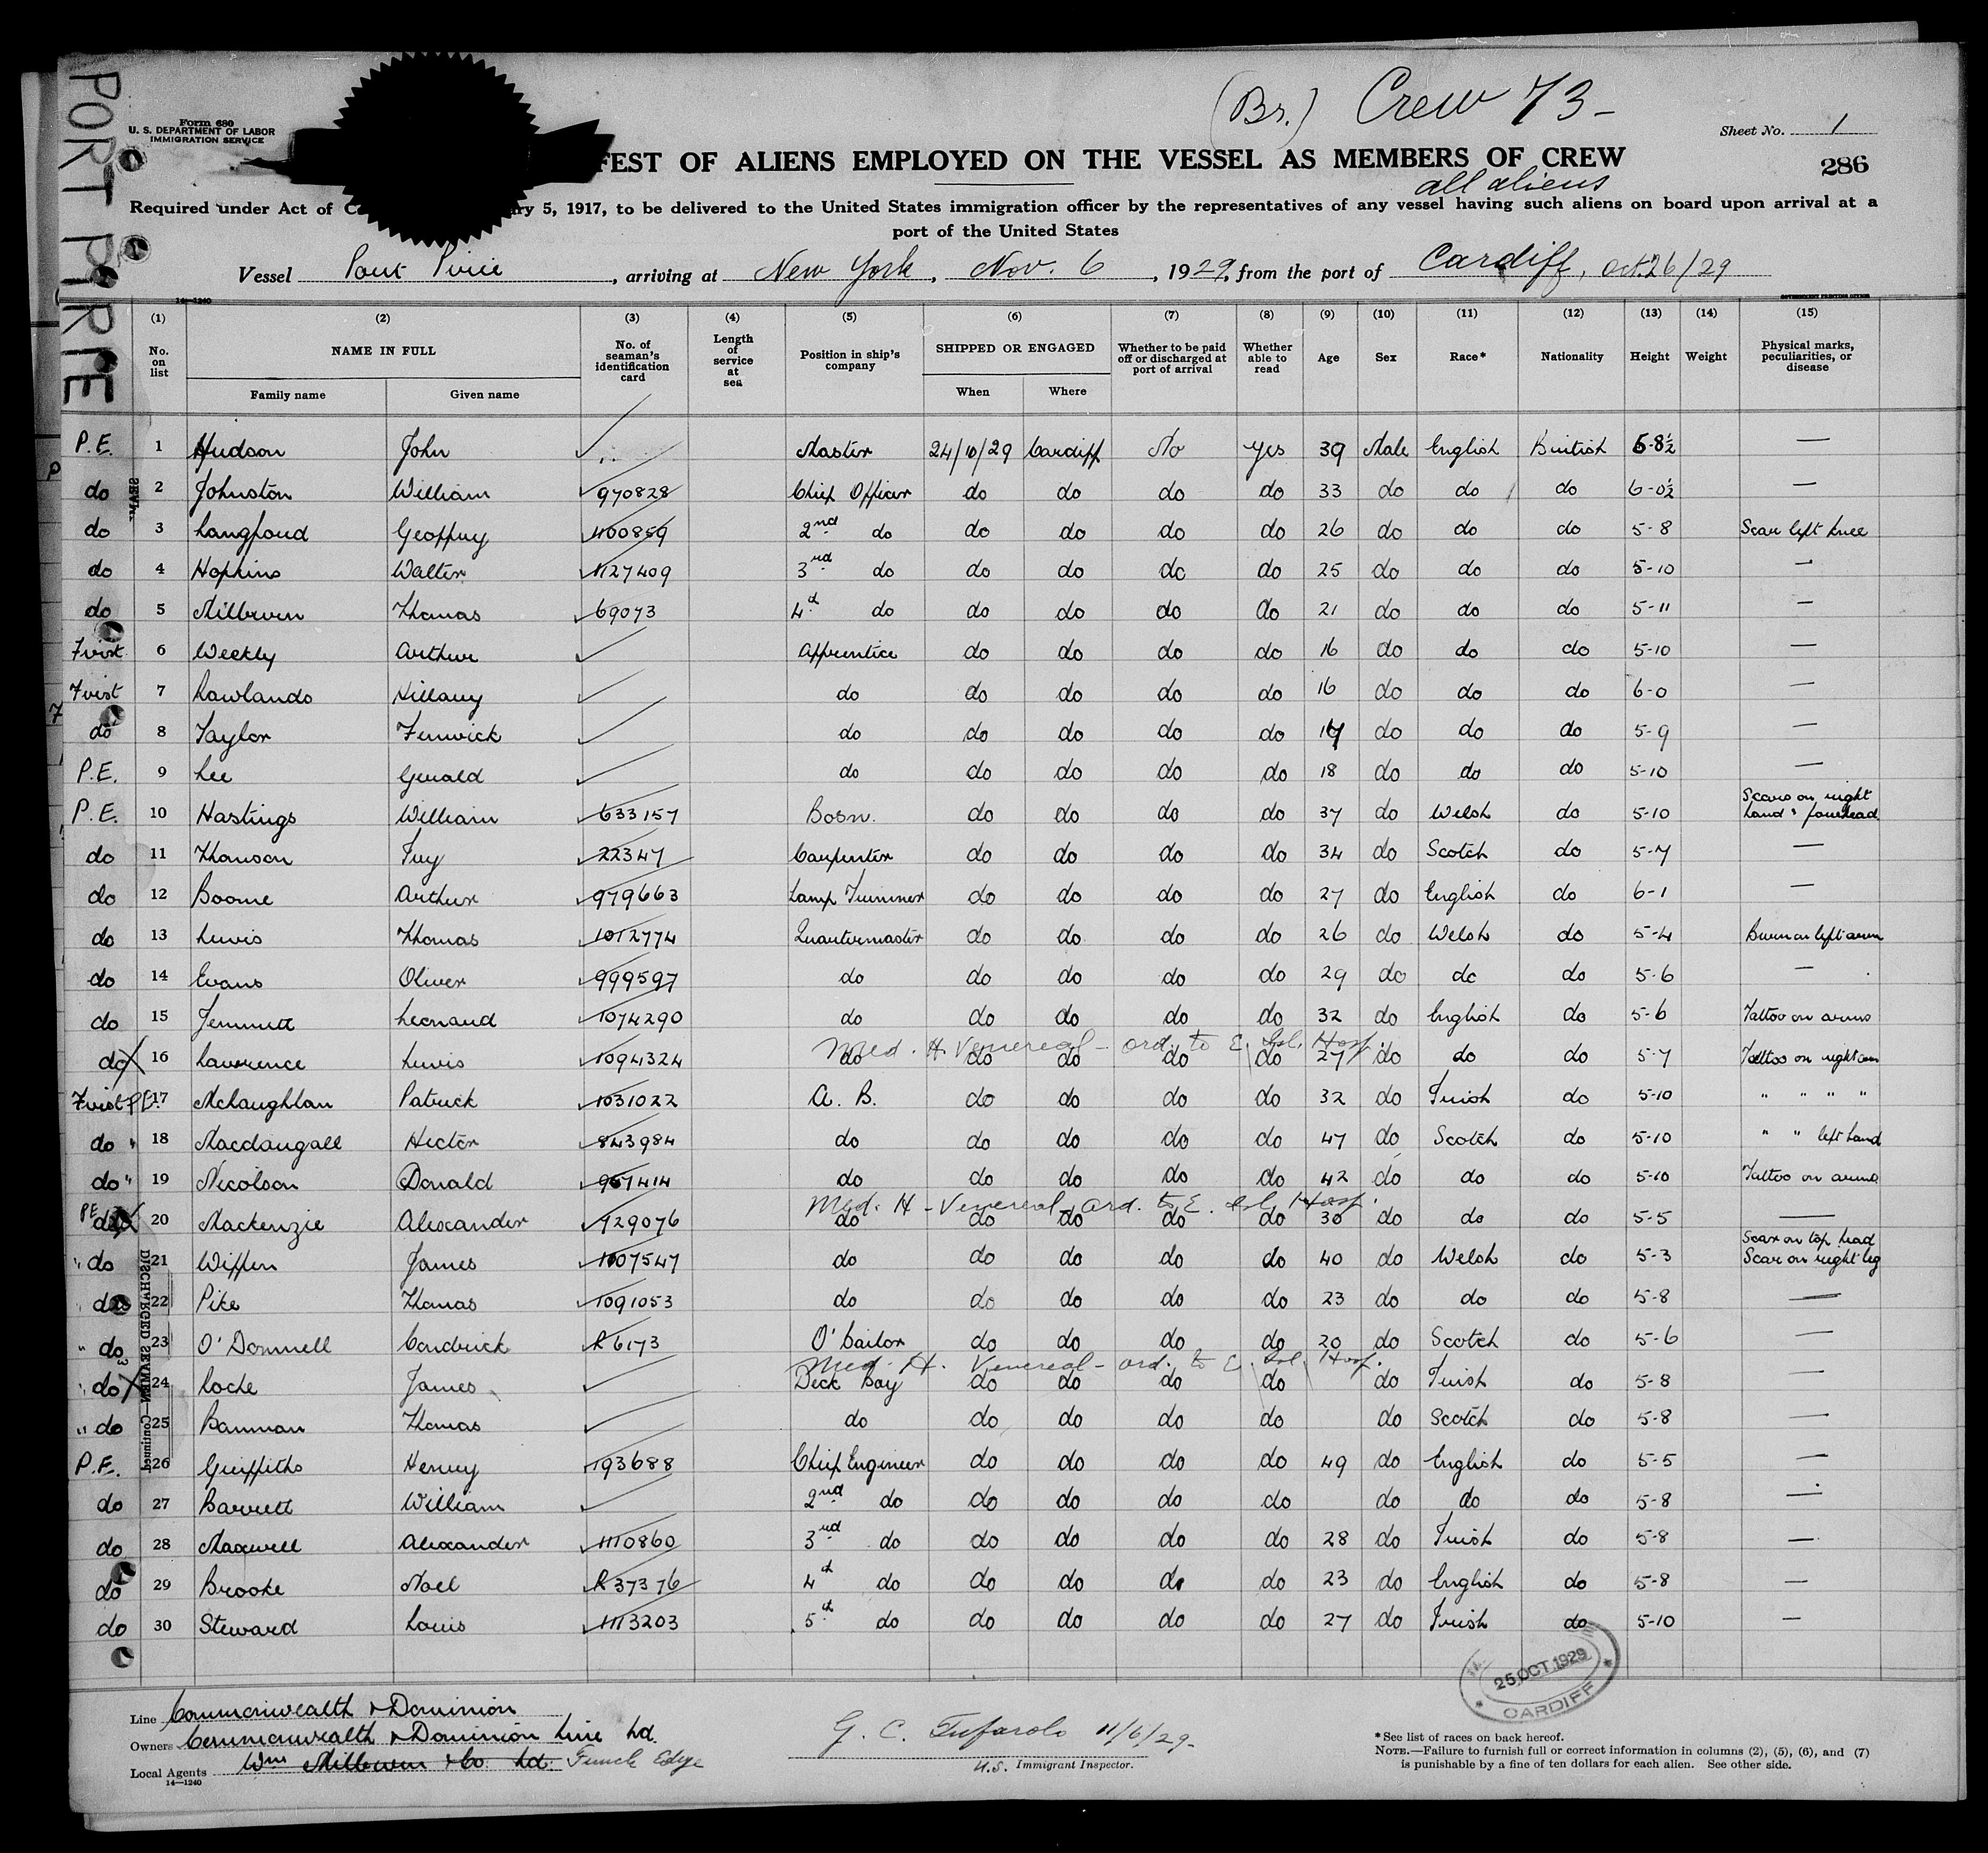 PORT PIRIE
(Br.) Crew 73-
Form 680
U. S. DEPARTMENT OF LABOR
IMMIGRATION SERVICE
Sheet No. 1
FEST OF ALIENS EMPLOYED ON THE VESSEL AS MEMBERS OF CREW
286
all aliens
Required under Act of C ry 5, 1917, to be delivered to the United States immigration officer by the representatives of any vessel having such aliens on board upon arrival at a
port of the United States
Vessel Port Pirie, arriving at New York, Nov. 6, 1929, from the port of Cardiff, Oct. 26/29
14—1240 GOVERNMENT PRINTING OFFICE
(1) (2) (3) (4) (5) (6) (7) (8) (9) (10) (11) (12) (13) (14) (15)
No. on list NAME IN FULL No. of seaman's identification card Length of service at sea Position in ship's company SHIPPED OR ENGAGED Whether to be paid off or discharged at port of arrival Whether able to read Age Sex Race* Nationality Height Weight Physical marks, peculiarities, or disease
Family name Given name When Where
P.E. 1 Hudson John Master 24/10/29 Cardiff No Yes 39 Male English British 5-8½ —
do 2 Johnston William 970828 Chief Officer do do do do 33 do do do 6-0½ —
do 3 Langford Geoffrey 1100859 2nd do do do do do 26 do do do 5-8 Scar left knee
do 4 Hopkins Walter 1127409 3rd do do do do do 25 do do do 5-10 —
do 5 Milburn Thomas 69073 4th do do do do do 21 do do do 5-11 —
First 6 Weekly Arthur Apprentice do do do do 16 do do do 5-10 —
First 7 Rowlands Hillary do do do do do 16 do do do 6-0 —
do 8 Taylor Fenwick do do do do do 17 do do do 5-9 —
P.E. 9 Lee Gerald do do do do do 18 do do do 5-10 —
P.E. 10 Hastings William 633157 Bosn. do do do do 37 do Welsh do 5-10 Scars on right hand & forehead
do 11 Thomson Ivy 22347 Carpenter do do do do 34 do Scotch do 5-7 —
do 12 Boorne Arthur 979663 Lamp Trimmer do do do do 27 do English do 6-1 —
do 13 Lewis Thomas 1012774 Quartermaster do do do do 26 do Welsh do 5-4 Burn on left arm
do 14 Evans Oliver 999597 do do do do do 29 do do do 5-6 —
do 15 Jemmett Leonard 1074290 do do do do do 32 do English do 5-6 Tattoo on arms
Med. H. Venereal - ord. to E. Isl. Hosp.
do X 16 Lawrence Lewis 1094324 do do do do do 27 do do do 5-7 Tattoo on right arm
First P.E. 17 McLaughlan Patrick 1031022 A. B. do do do do 32 do Irish do 5-10 " " " "
do " 18 Macdougall Hector 843984 do do do do do 47 do Scotch do 5-10 " " left hand
do " 19 Nicolson Donald 967414 do do do do do 42 do do do 5-10 Tattoo on arms
Med. H - Venereal - ord. to E. Isl. Hosp.
PE do X 20 Mackenzie Alexander 929076 do do do do do 30 do do do 5-5 —
" do 21 Wiffen James 1107547 do do do do do 40 do Welsh do 5-3 Scar on top head Scar on right leg
" do 22 Pike Thomas 1091053 do do do do do 23 do do do 5-8 —
" do 23 O'Donnell Condrick R 6173 O'Sailor do do do do 20 do Scotch do 5-6 —
Med. H. Venereal - ord. to E. Isl. Hosp.
" do X 24 Roche James Deck Boy do do do do do Irish do 5-8 —
" do 25 Bannan Thomas do do do do do do Scotch do 5-8 —
P.E. 26 Griffiths Henry 793688 Chief Engineer do do do do 49 do English do 5-5 —
do 27 Barrett William 2nd do do do do do do do do 5-8 —
do 28 Maxwell Alexander 1110860 3rd do do do do do 28 do Irish do 5-8 —
do 29 Brooke Noel R 37376 4th do do do do do 23 do English do 5-8 —
do 30 Steward Louis 1113203 5th do do do do do 27 do Irish do 5-10 —
DISCHARGED SEAMEN—Continued
25 OCT 1929
CARDIFF
Line Commonwealth & Dominion
Owners Commonwealth & Dominion Line Ld.
Local Agents Wm Milburn & Co. Ld. Funch Edye
14—1240
G. C. Tufarolo 11/6/29-
U.S. Immigrant Inspector.
*See list of races on back hereof.
NOTE.—Failure to furnish full or correct information in columns (2), (5), (6), and (7)
is punishable by a fine of ten dollars for each alien. See other side.